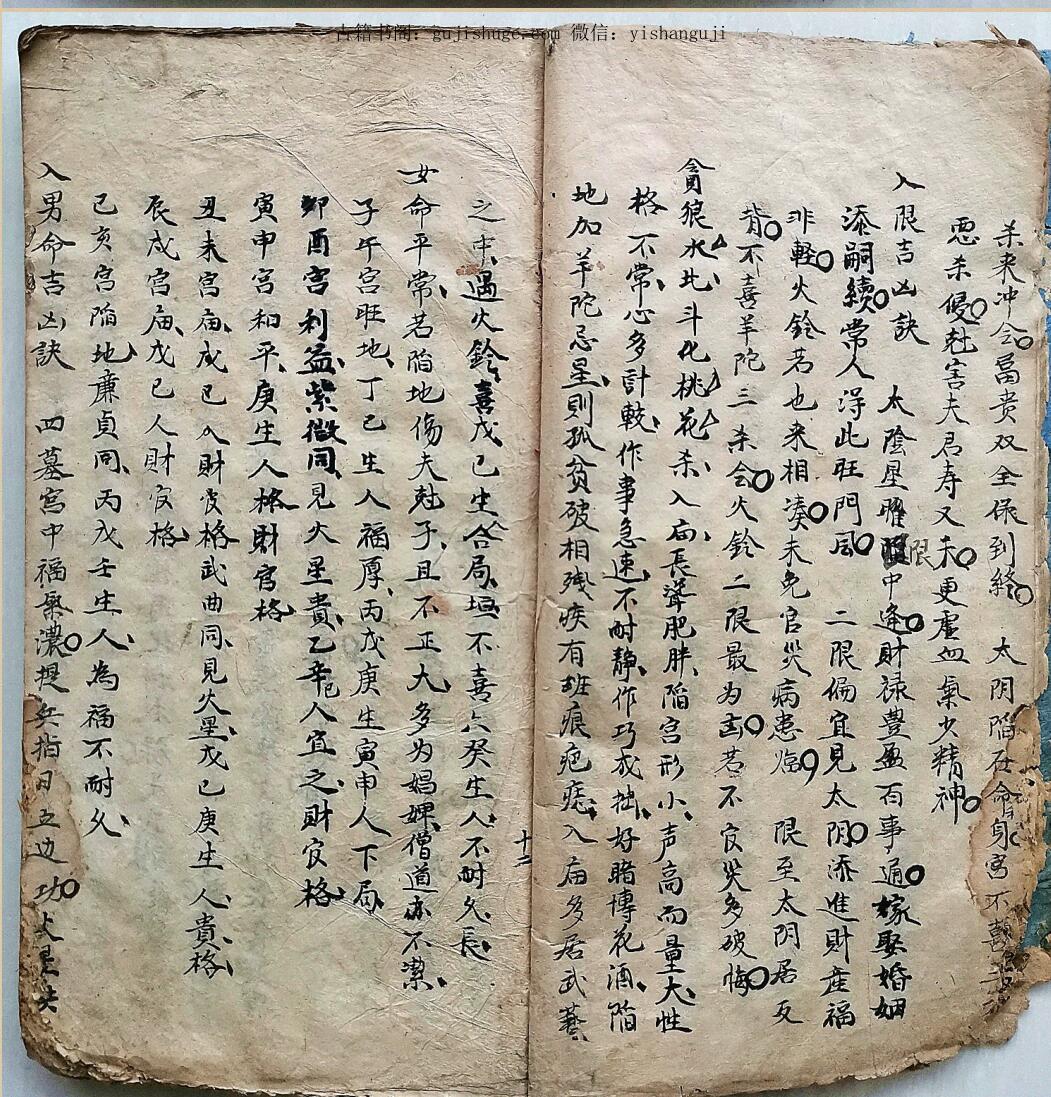 古籍书阁：gujishuge.com 微信：yishanguji
杀来冲会富贵双全保到终 太阴陷在命身宫不喜
恶杀侵尅害夫君寿又夭更虚血氣少精神
入限吉凶訣 太陰星曜限中逢財禄豊盈百事通嫁娶婚姻
添嗣續常人浔此旺門风 二限偏宜見太阴添進財産福
非輕火鈴若也来相凑未免官灾病患临 限至太阴居反
背不喜羊陀三杀会火鈴二限最为凶若不官灾多破悔
貪狼水北斗化桃花杀入庙長聳肥胖陷宫形小声高而量大性
格不常心多計較作事急速不耐静作巧成拙好賭博花酒陷
地加羊陀忌星則孤贫破相残疾有斑痕疤痣入庙多居武藝
十二
之中遇火鈴喜戊己生合局垣不喜六癸生人不耐久長
女命平常若陷地傷夫尅子且不正大多为娼婢僧道亦不潔
子午宫旺地丁己生人福厚丙戊庚生寅申人下局
卯酉宫利益紫微同見火星貴乙辛己人宜之財官格
寅申宫和平庚生人格財官格
丑未宫庙戊己人財官格武曲同見火星戊己庚生人貴格
辰戌宫庙戊己人財官格
巳亥宫陷地廉貞同丙戊壬生人為福不耐久
入男命吉凶訣 四墓宫中福氣濃提兵指日立边功火星